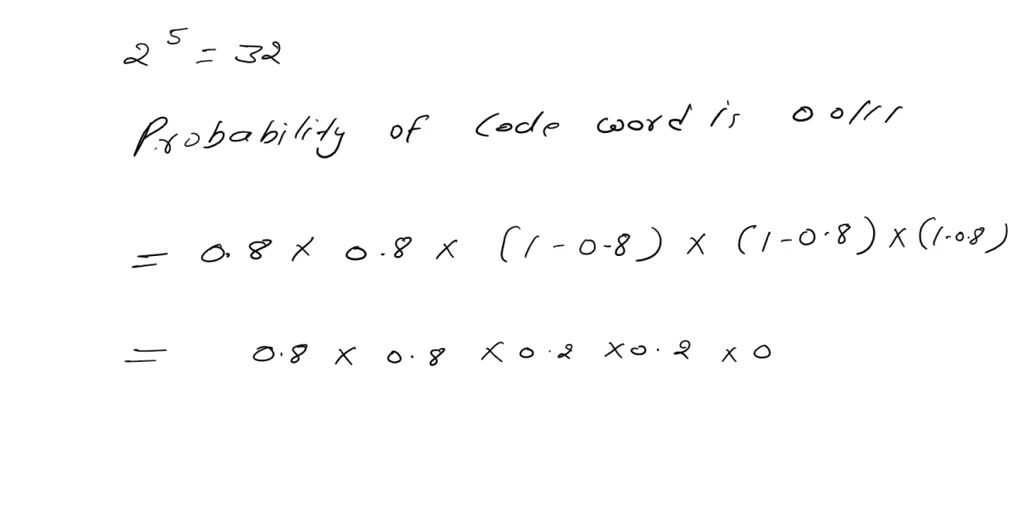 2^5 = 32
Probability of code word is 00111
= 0.8 × 0.8 × (1-0.8) × (1-0.8) × (1-0.8)
= 0.8 × 0.8 × 0.2 × 0.2 × 0